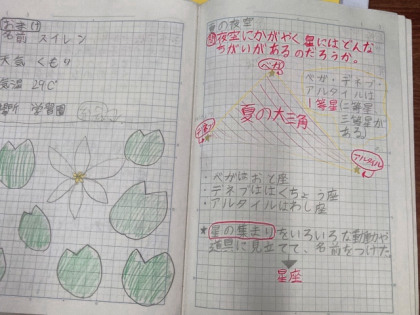 おまけ
名前 スイレン
天気 くもり
気温 29℃
場所 学習園
夏の夜空
夜空にかがやく星にはどんな
ちがいがあるのだろうか。
ベガ
ベガ・デネブ・
アルタイルは
1等星 二等星
三等星が
ある
夏の大三角
アルタイル
・ベガはおと座
・デネブははくちょう座
・アルタイルはわし座
★星の集まりをいろいろな動物や
道具に見立てて、名前をつけた
星座